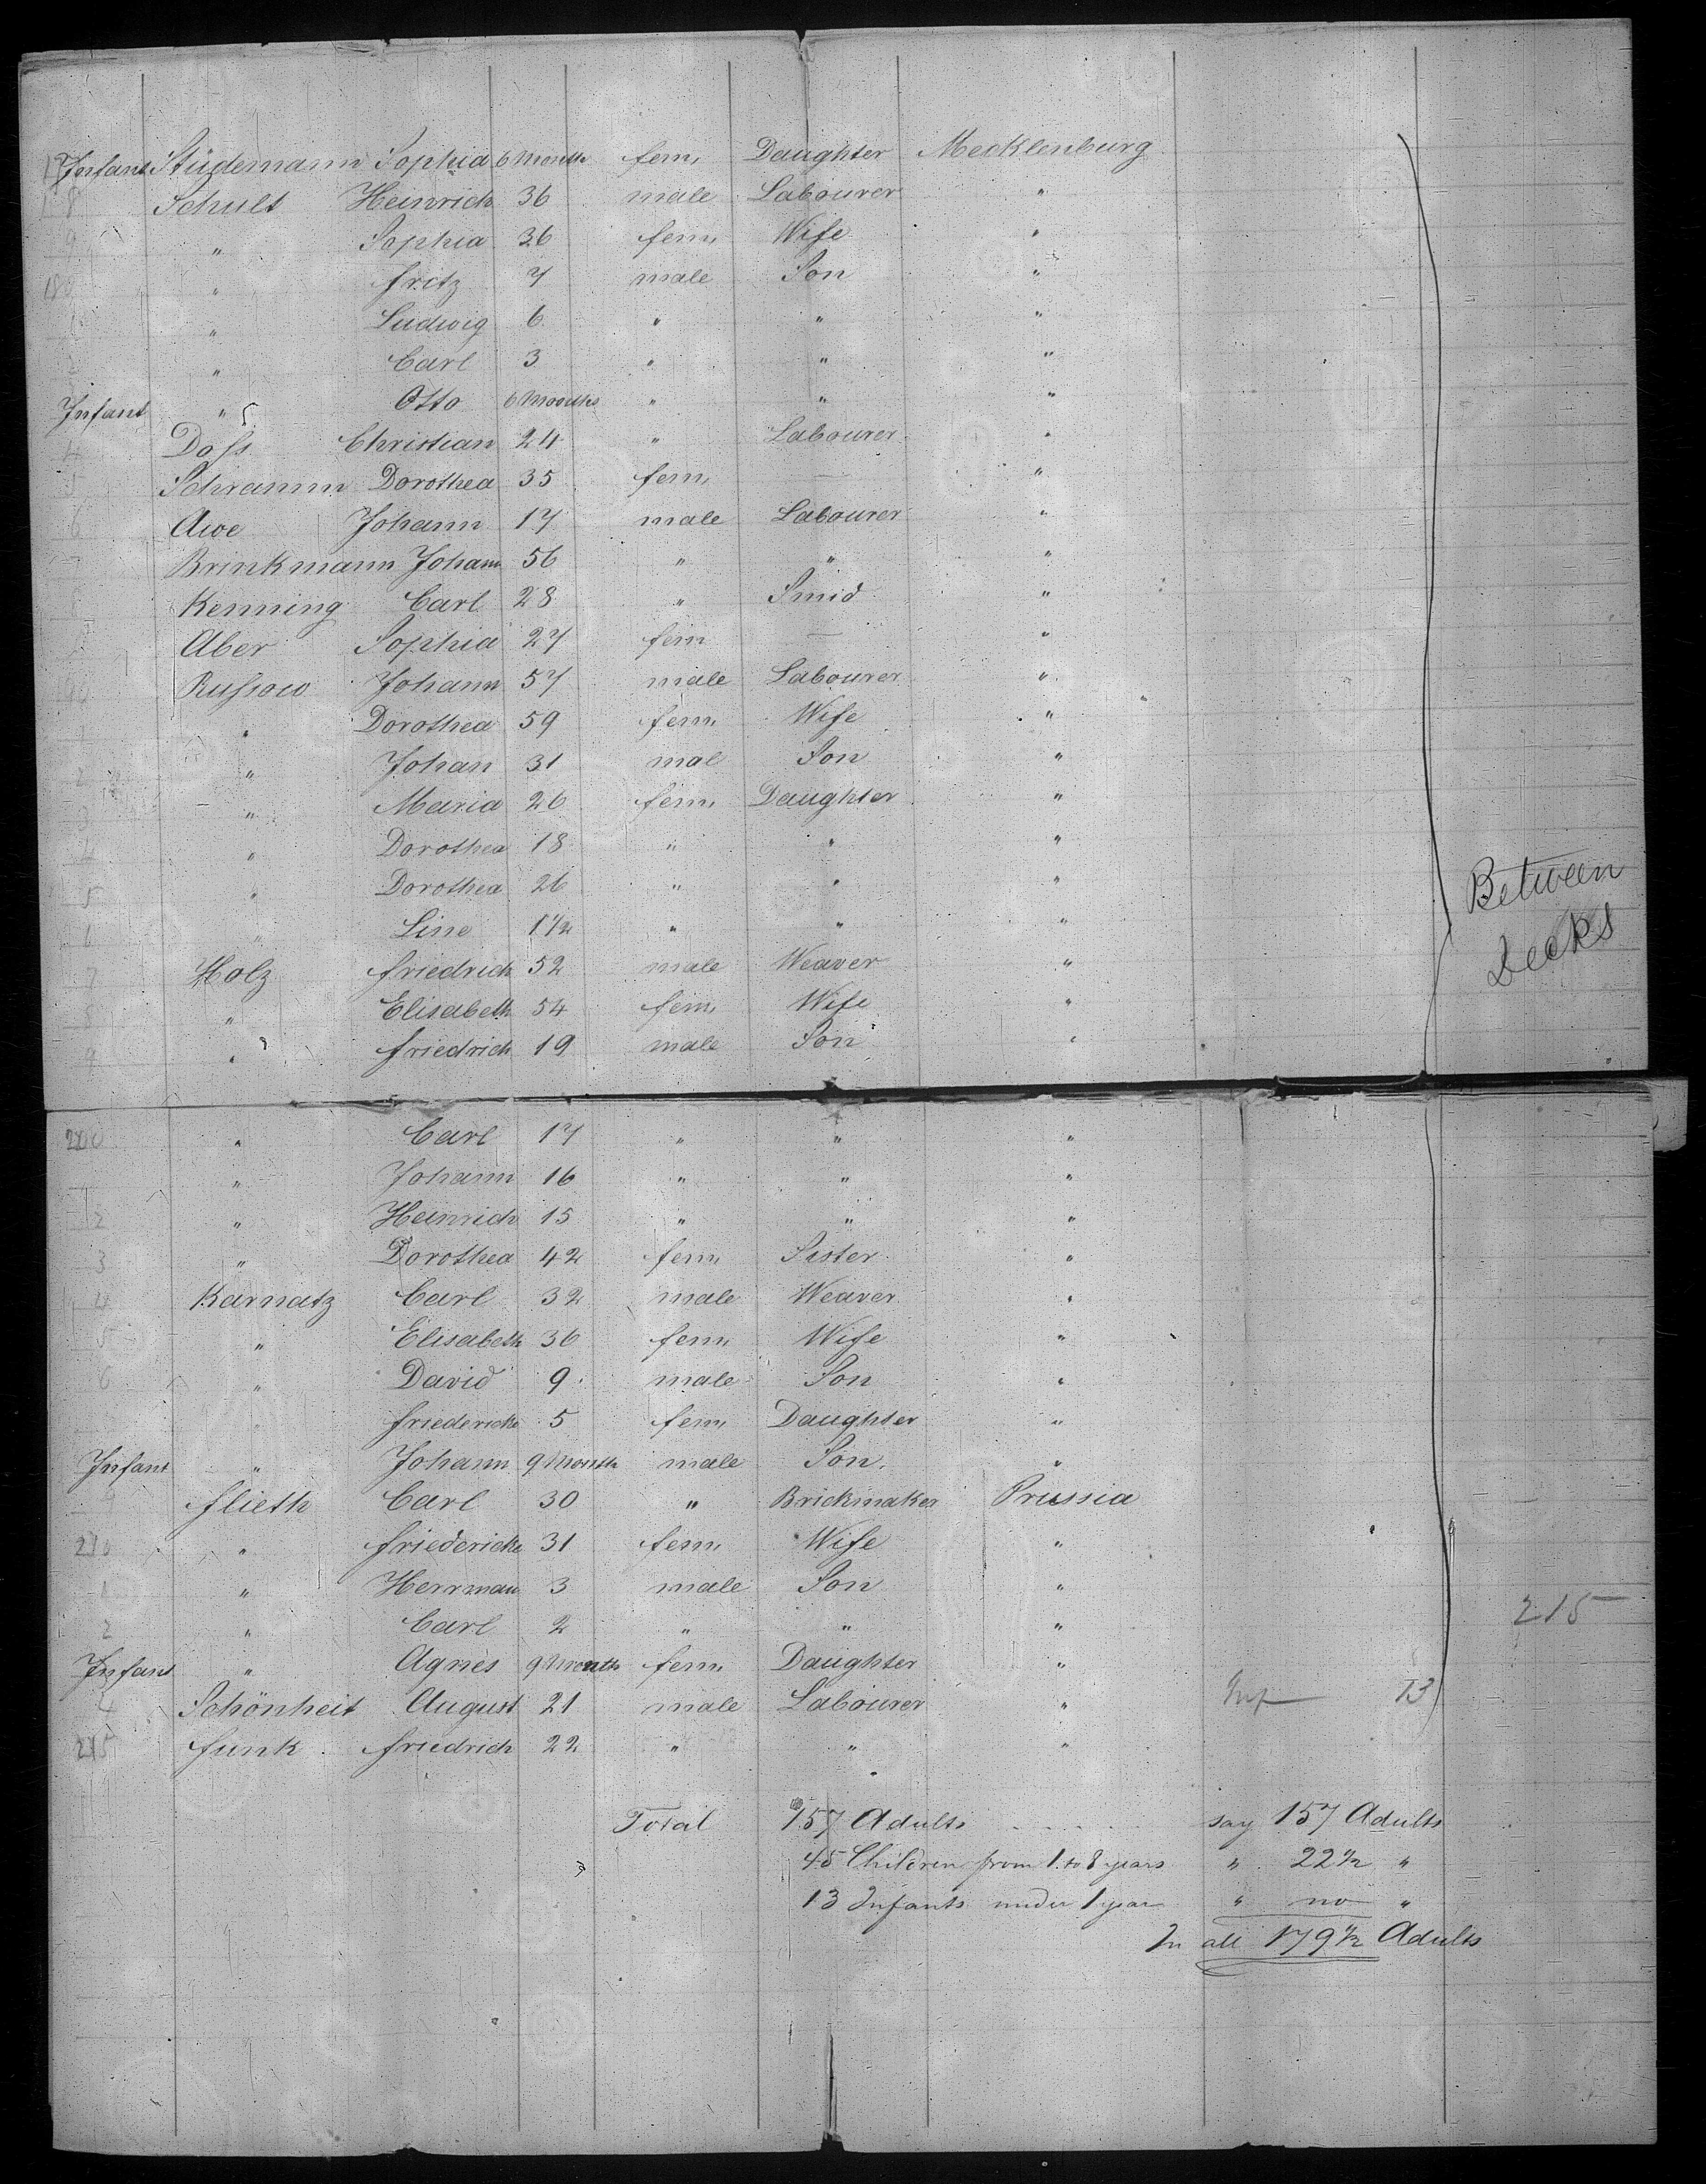 Infant Stüdemann Sophia 6 Month fem. Daughter Mecklenburg
8 Schult Heinrich 36 male Labourer "
9 " Sophia 36 fem. Wife "
180 " Fritz 7 male Son "
1 " Ludwig 6 " " "
2 " Carl 3 " " "
Infant " Otto 6 Months " " "
4 Doss Christian 24 " Labourer "
5 Schramm Dorothea 35 fem. — "
6 Awe Johann 17 male Labourer "
Brinkmann Johann 56 " " "
8 Kenning Carl 28 " Smid "
Aber Sophia 27 fem — "
190 Russow Johann 57 male Labourer "
1 " Dorothea 59 fem. Wife "
2 " Johan 31 mal Son "
3 " Maria 26 fem. Daughter "
4 " Dorothea 18 " " "
5 " Dorothea 26 " " "
6 " Line 1 1/2 " " "
7 Holz Friedrich 52 male Weaver "
8 " Elisabeth 54 fem. Wife "
9 " Friedrich 19 male Son "
Between
Decks
200 " Carl 17 " " "
1 " Johann 16 " " "
2 " Heinrich 15 " " "
3 " Dorothea 42 fem. Sister "
4 Karnatz Carl 32 male Weaver "
5 " Elisabeth 36 fem. Wife "
6 " David 9 male Son "
" Friedericke 5 fem. Daughter "
Infant " Johann 9 Month male Son. "
9 Flieth Carl 30 " Brickmaker Prussia
210 " Friedericke 31 fem. Wife "
1 " Herrman 3 male Son "
2 " Carl 2 " " "
215
Infant " Agnes 9 Month fem. Daughter "
4 Schönheit August 21 male Labourer " Inf 13
215 Funk Friedrich 22 " " "
Total 157 Adults say 157 Adults
45 Children from 1 to 8 years " 22 1/2 "
13 Infants under 1 year " no "
In all 179 1/2 Adults